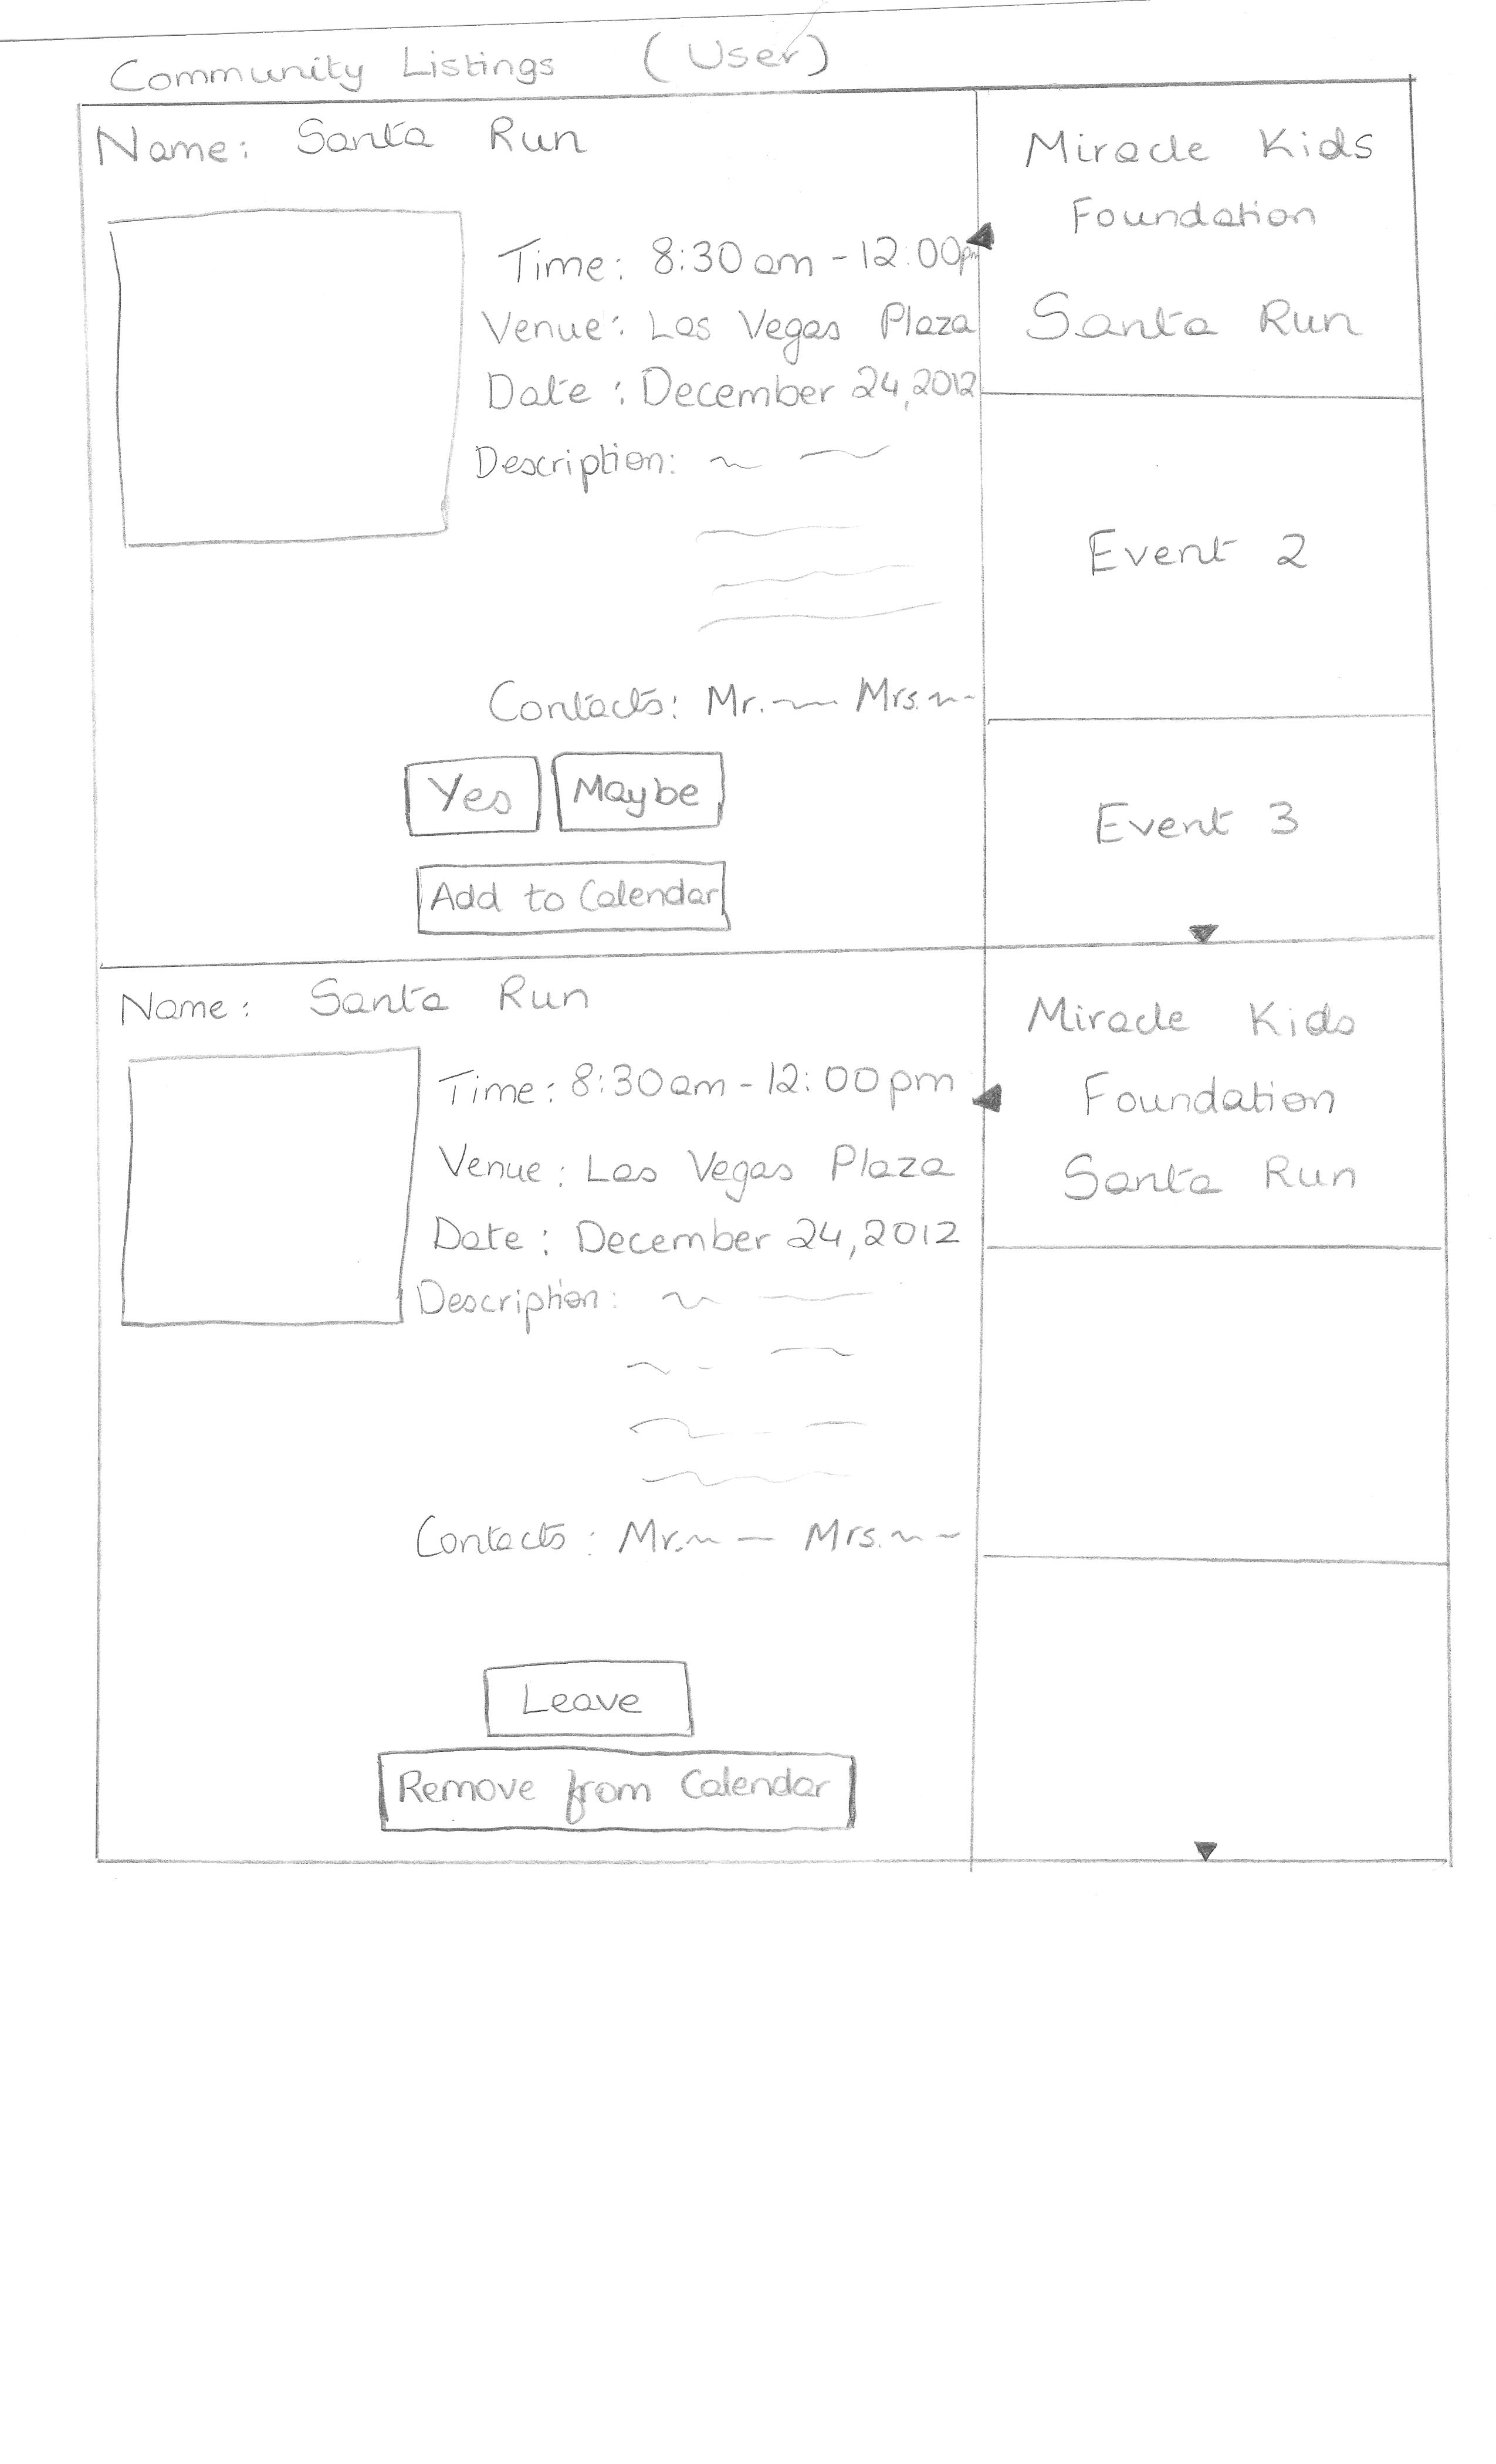 Community Listings (User)
Name: Santa Run
Time: 8:30 am - 12:00pm
Venue: Las Vegas Plaza
Date : December 24, 2012
Description:
Contacts: Mr. Mrs.
Yes
Maybe
Add to Calendar
Miracle Kids
Foundation
Santa Run
Event 2
Event 3
Name: Santa Run
Time: 8:30am - 12:00pm
Venue: Las Vegas Plaza
Date : December 24, 2012
Description:
Contacts : Mr. Mrs.
Leave
Remove from Calendar
Miracle Kids
Foundation
Santa Run